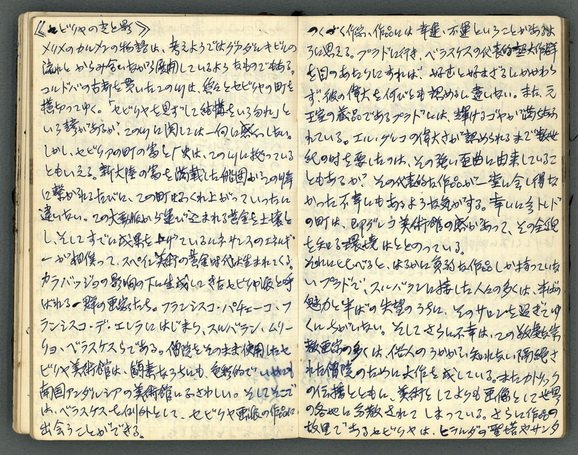 《セビリヤの光と影》
メリメのカルメンの物語は、考えようではグアダルキビルの
流れとからみ合いながら展開しているようなものである。
コルドバの古都を貫いたこの川は、悠々とセビリヤの町を
横切ってゆく。「セビリヤを見ずして結構をいう勿れ」と
いう諺があるが、この川に関しては一向に感心しない。
しかし、セビリヤの町の富と歴史は、この川に拠っている
ともいえる。新大陸の富を満載した船団がこの川岸
に繋がれるたびに、この町はふくれ上がっていったに
違いない。この大動脈から運び込まれる黄金を土壌と
し、そしてすでに成果を上げているルネサンスのエネルギ
ーが相俟って、スペイン美術の黄金時代は生まれてくる。
カラバッジョの影響の下に生成してきたセビリヤ派と呼
ばれる一群の画家たち。フランシスコ・パチェーコ、フ
ランシスコ・デ・エレラにはじまり、スルバラン、ムリー
リョ、ベラスケスらである。僧院をそのまま使用したセ
ビリヤ美術館は、簡素なうちにも、色彩的で
南国アンダルシアの美術館にふさわしい。そしてそこで
は、ベラスケスを例外として、セビリヤ画派の作品に
出会うことができる。
つくづく作家、作品には幸運、不運ということがあるよ
うに思える。プラドに行き、ベラスケスの代表的大作群
を目のあたりにすれば、好むと好まざるにかかわら
ず彼の偉大を何びとも認めるに違いない。また、元
王室の蔵品であるプラドには、輝けるゴヤが満ちあふ
れている。エル・グレコの偉大さが認められるまで数世
紀の時を要したのは、その強い歪曲に由来しているこ
ともあるが、その代表的な作品が一堂に会し得な
かった不幸にもあるような気がする。幸いに今トレド
の町は、即グレコ美術館の感があって、その全貌
を知る環境はととのっている。
それにくらべると、はるかに貧弱な作品しか持っていな
いプラドで、スルバランに接した人の多くは、半ばの
魅力と半ばの失望のうちに、そのサロンを過ぎてゆ
くにちがいない。そしてさらに不幸は、この
画家の多くは、俗人のうかがい知れない隔絶さ
れた僧院のために大作を成している。またカトリック
の伝播とともに、美術としてよりも画像として世界
の各地に分散されてしまっている。さらに作品の
故里であるセビリヤは、ヒラルダの聖塔やサンタ